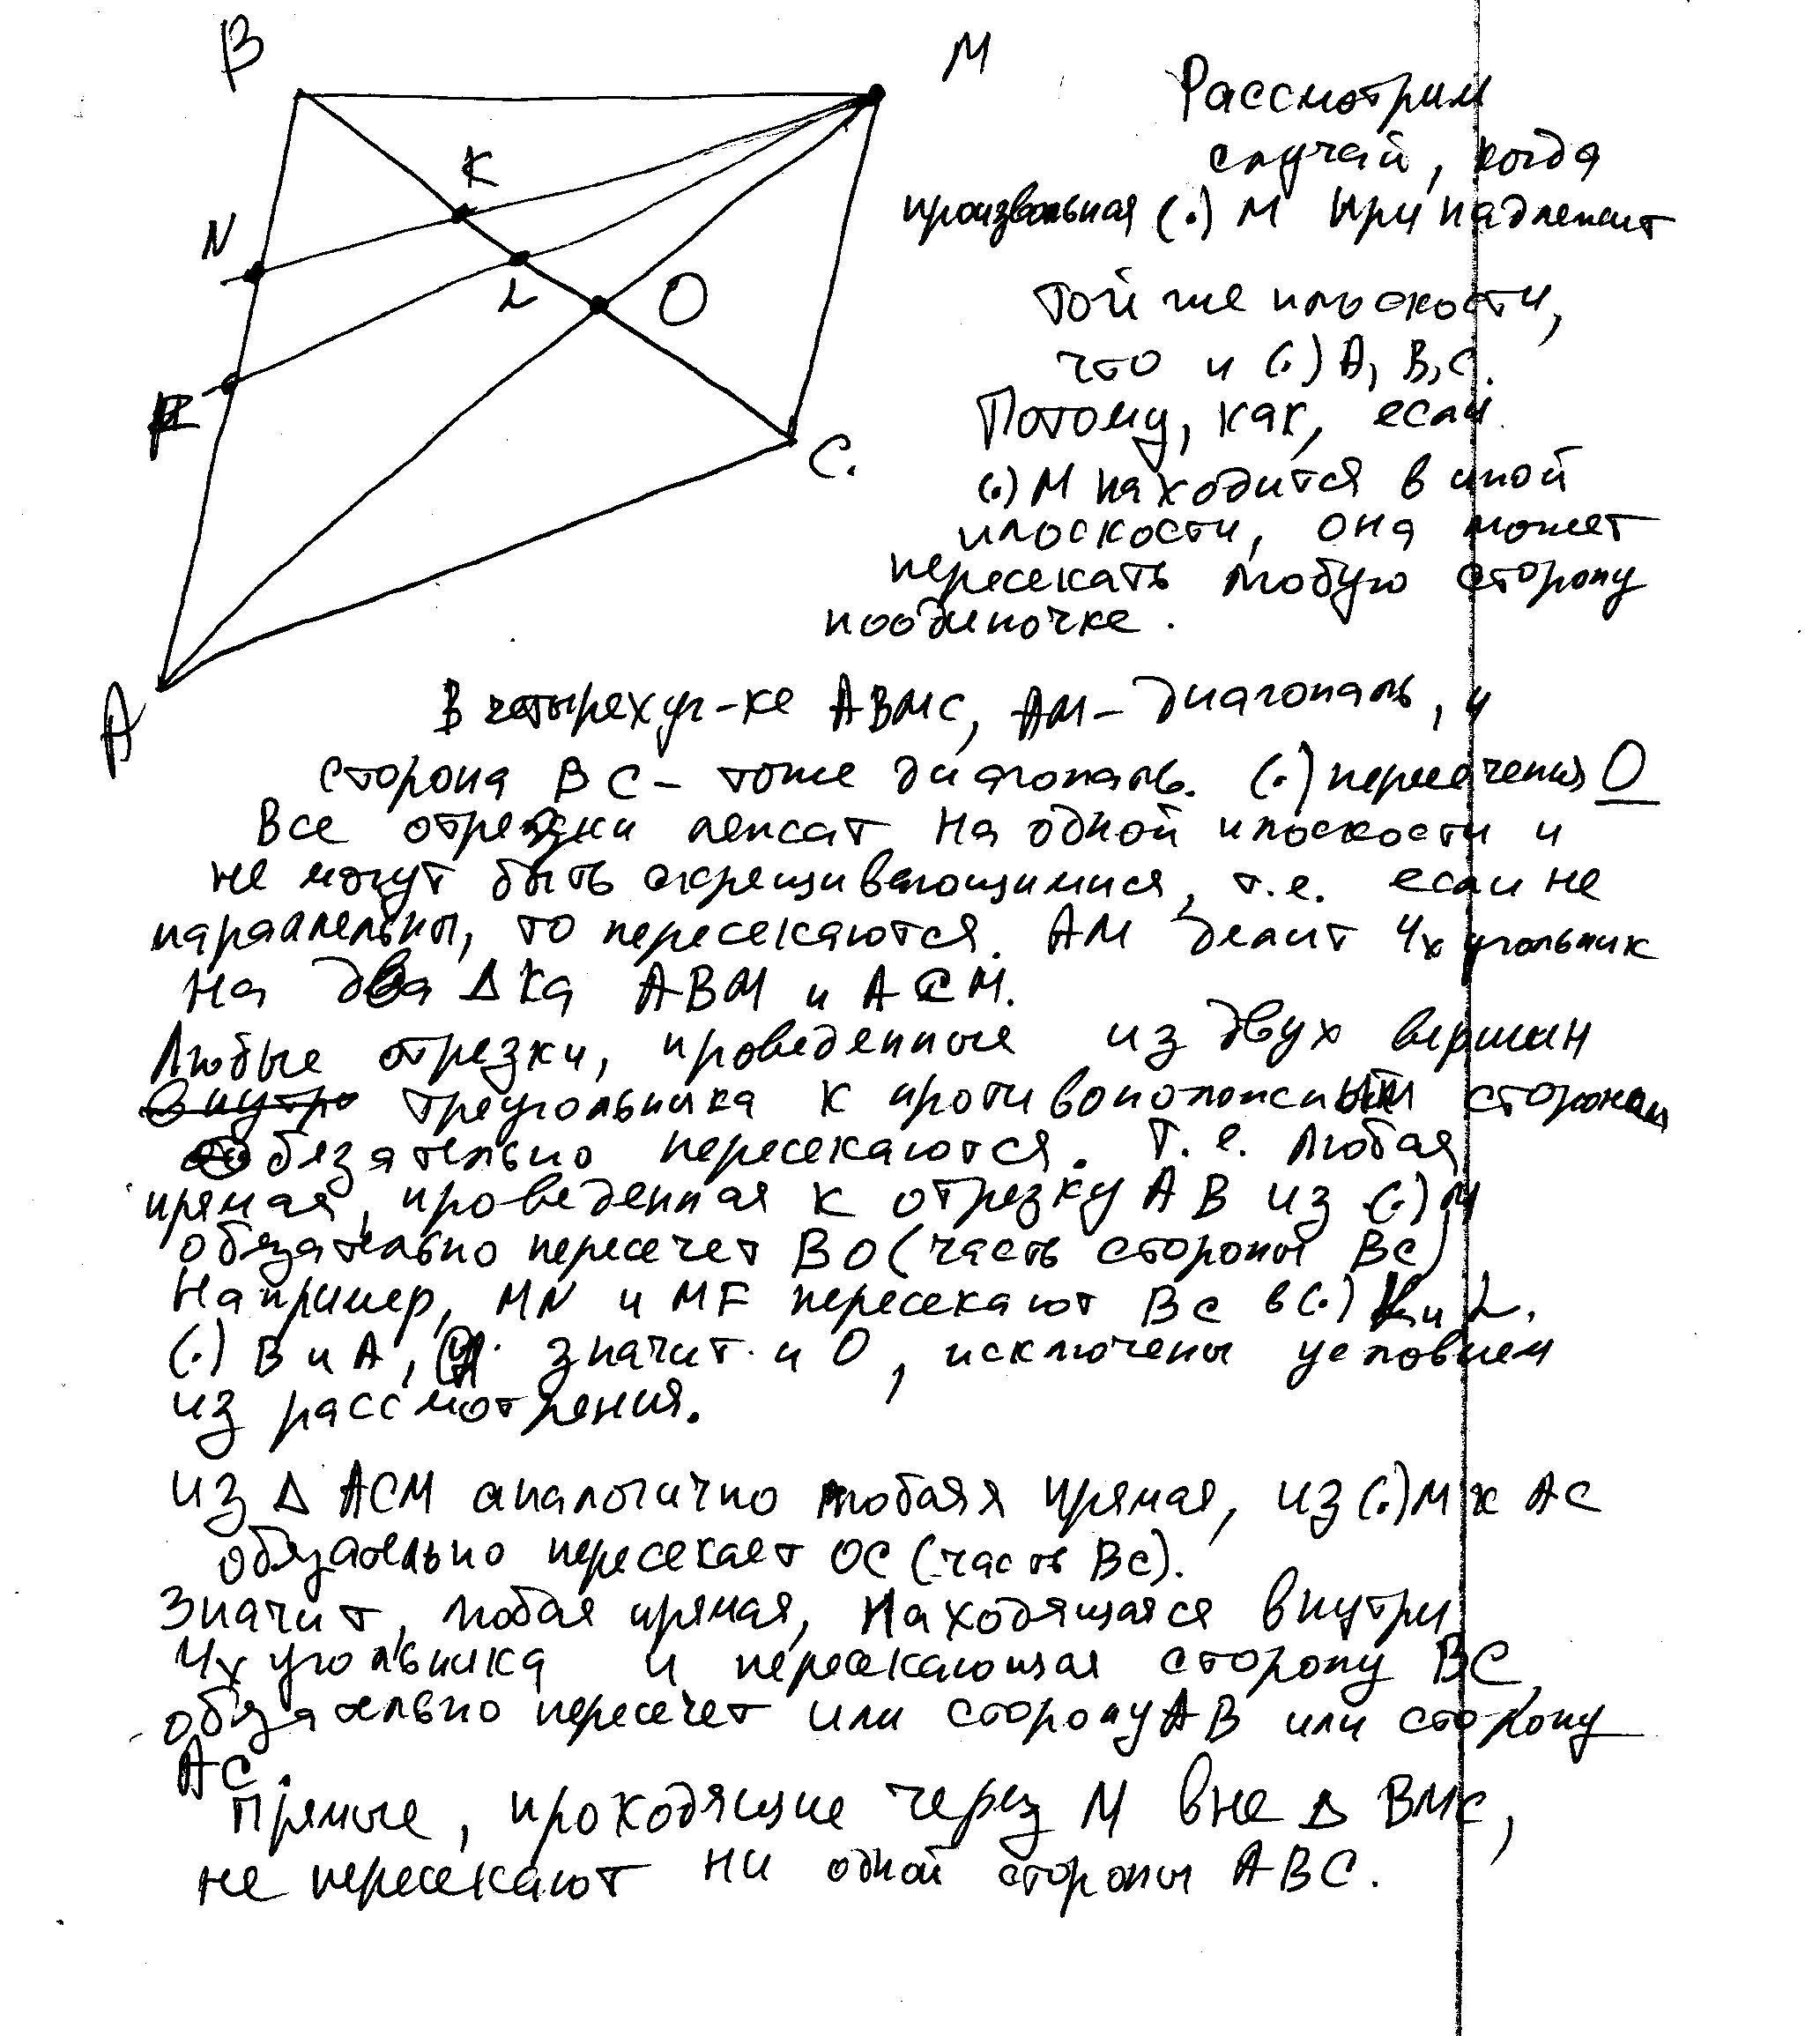 B
M
K
N
L
O
F
C.
A
Рассмотрим
случай, когда
произвольная (.) М принадлежит
той же плоскости,
что и (.) А, В, С.
Потому, как, если
(.) М находится в иной
плоскости, она может
пересекать любую сторону
поодиночке.
В четырехуг-ке АВМС, АМ – диагональ, и
сторона ВС – тоже диагональ. (.) пересечения О
Все отрезки лежат на одной плоскости и
не могут быть скрещивающимися, т.е. если не
параллельны, то пересекаются. АМ делит 4х угольник
на два Δка АВМ и АСМ.
Любые отрезки, проведенные из двух вершин
треугольника к противоположным сторонам
обязательно пересекаются. Т.е. любая
прямая, проведенная к отрезку АВ из (.) М
обязательно пересечет ВО (часть стороны ВС)
Например, MN и MF пересекают ВС в (.) К и L.
(.) В и А, значит и О, исключены условием
из рассмотрения.
из Δ АСМ аналогично любая прямая, из (.) М к АС
обязательно пересекает ОС (часть ВС).
Значит, любая прямая, находящаяся внутри
4х угольника и пересекающая сторону ВС,
обязательно пересечет или сторону АВ или сторону
АС.
Прямые, проходящие через М вне Δ ВМС,
не пересекают ни одной стороны АВС.